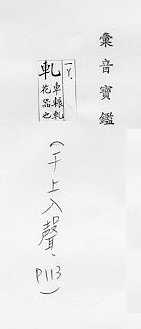 彙音寶鑑
軋
車輾軋
花品之
(干上入聲,
P113)